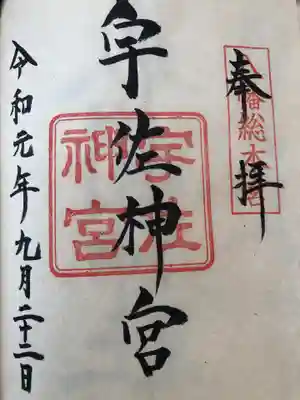 奉拝
八幡総本宮
宇佐神宮
宇佐
神宮
令和元年九月二十二日